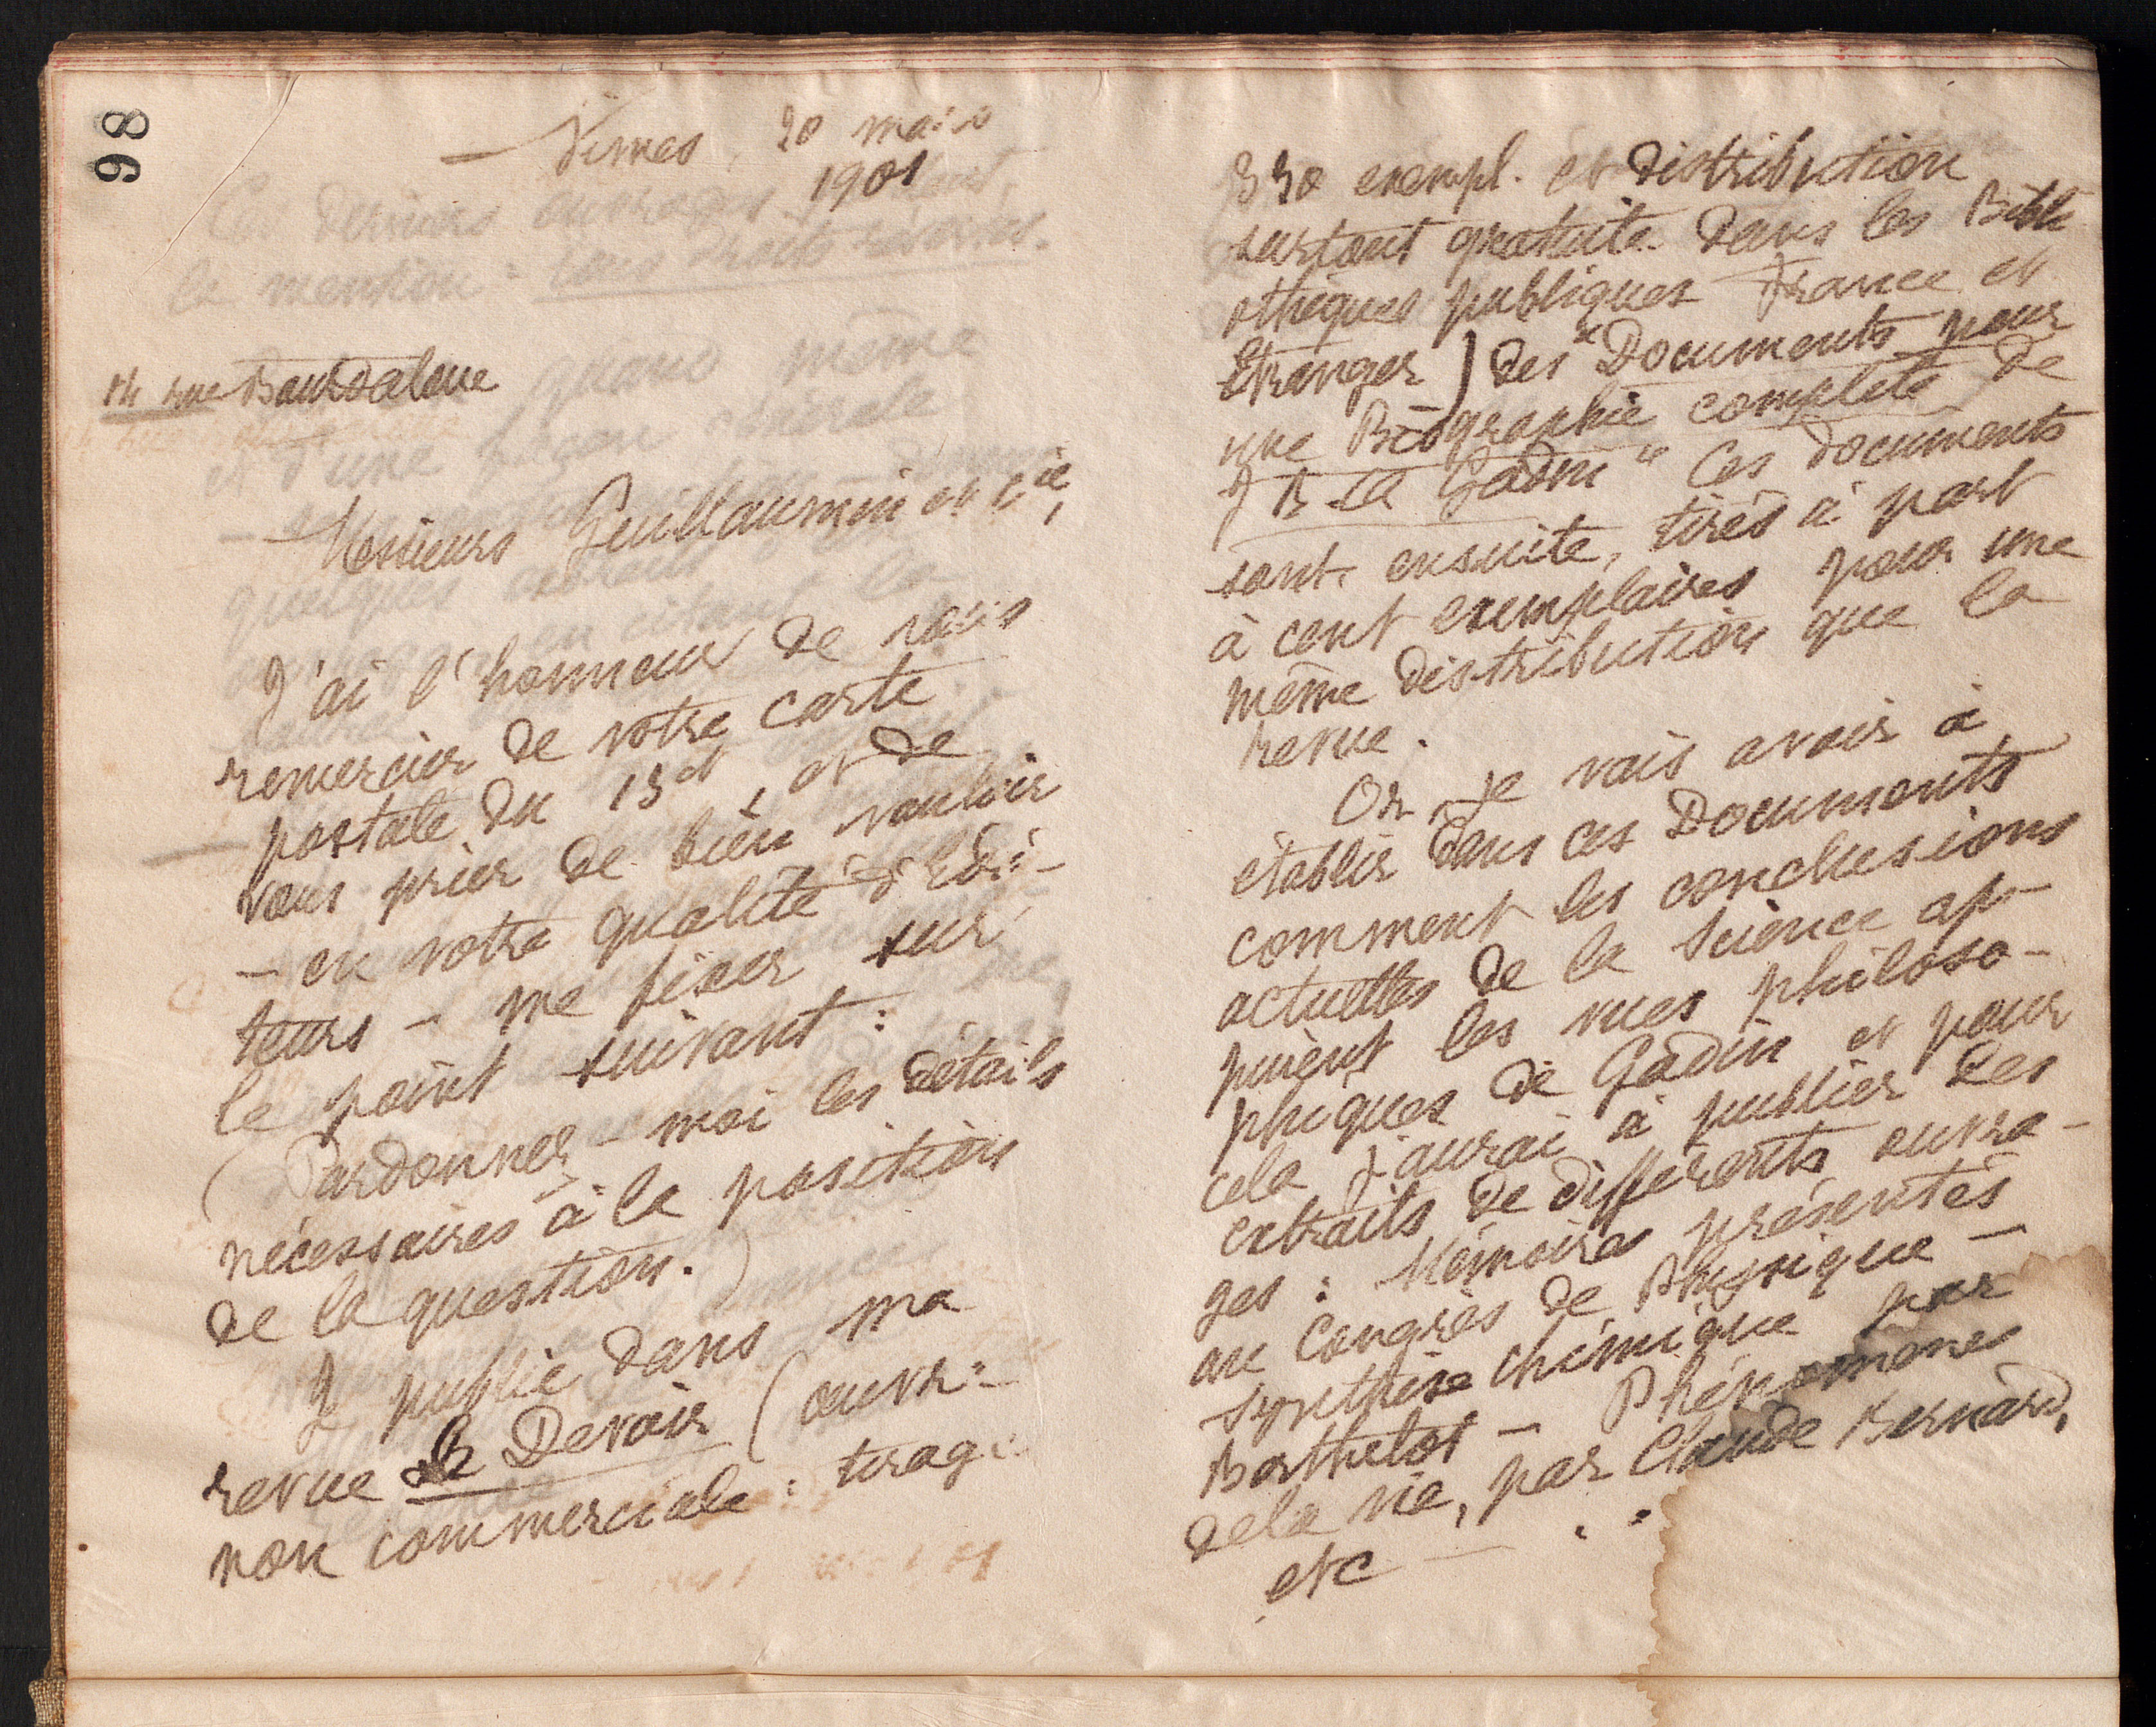 98
Nimes, 20 mars
1901
14 rue Bourdaloue
Messieurs Guillaumin et Cie,
J'ai l'honneur de vous
remercier de votre carte
postale du 13 ct, et de
vous prier de bien vouloir
– en votre qualité d'Edi-
teurs – me fixer sur
le point suivant :
(Pardonnez-moi les détails
nécessaires à la position
de la question.)
J publie dans ma
revue Le Devoir (œuvre
non commerciale : tirage
exempl. et distribution
surtout gratuite dans les Bibli
othèques publiques France et
Etranger) des "Documents pour
une Biographie complète de
J B A Godin" Ces documents
sont, ensuite, tirés à part
à cent exemplaires pour une
même distribution que la
revue.
Or, je vais avoir à
établir dans ces Documents
comment les conclusions
actuelles de la Science ap-
puient les vues philoso-
phiques de Godin et pour
cela j'aurai à publier des
extraits de différents ouvra-
ges : Mémoires présentés
au Congrès de Physique –
Synthèse chimique par
Berthelot – Phénomènes
de la vie, par Claude Bernard,
etc – . .